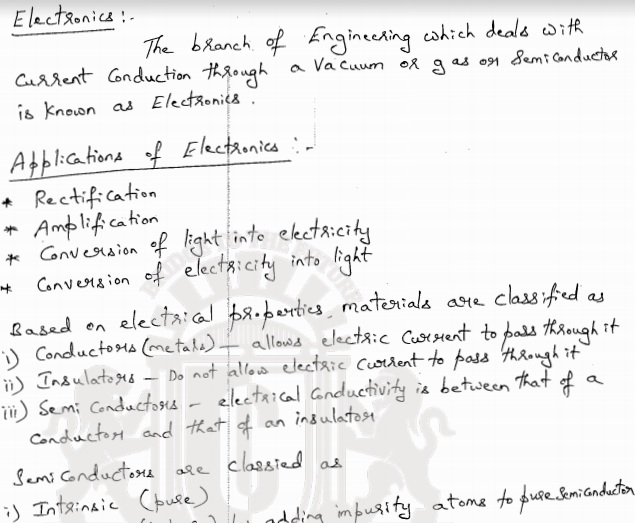 Electronics :-
The branch of Engineering which deals with
current conduction through a vacuum or gas or Semiconductor
is known as Electronics.
Applications of Electronics :-
* Rectification
* Amplification
* Conversion of light into electricity
* Conversion of electricity into light
Based on electrical properties, materials are classified as
i) Conductors (metals) — allows electric current to pass through it
ii) Insulators — Do not allow electric current to pass through it
iii) Semi Conductors - electrical conductivity is between that of a
conductor and that of an insulator
Semi Conductors are classied as
i) Intrinsic (pure)
adding impurity atoms to pure semiconductor